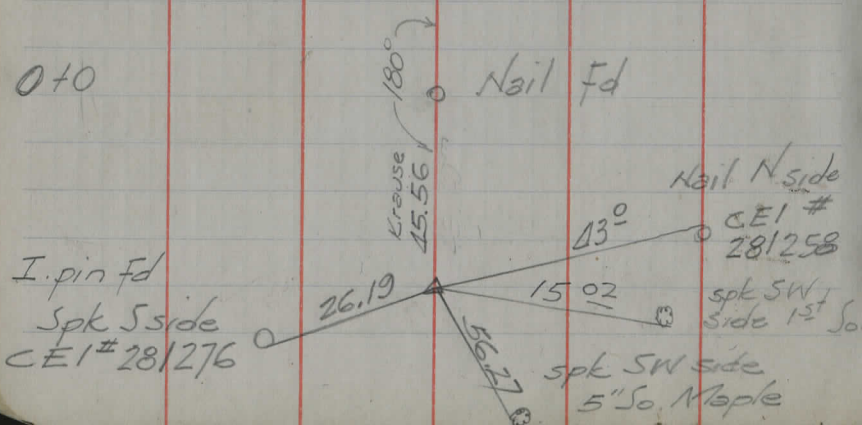 0+0
180°
Nail Fd
Krause
45.56
Nail N side
CEI #
281258
43º
I. pin Fd
Spk S side
CEI # 281276
26.19
15 02
spk SW
side 1st So
56.27
spk SW side
5" So. Maple